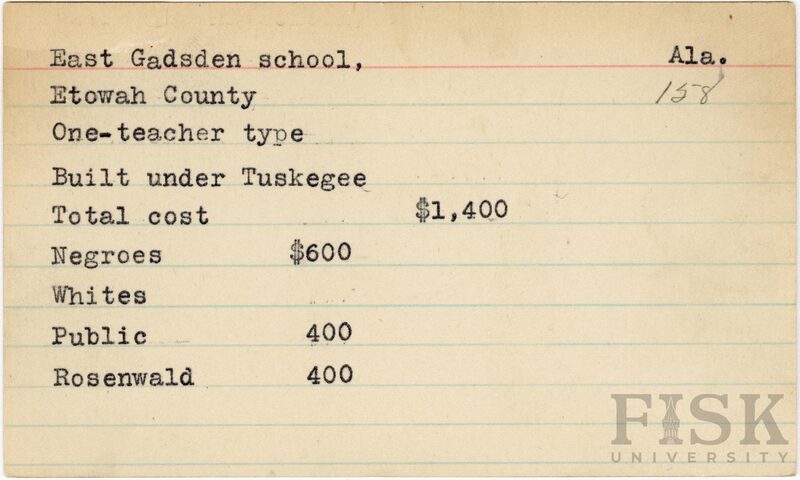 East Gadsden school, Ala.
Etowah County 158
One-teacher type
Built under Tuskegee
Total cost $1,400
Negroes $600
Whites
Public 400
Rosenwald 400
FISK
UNIVERSITY